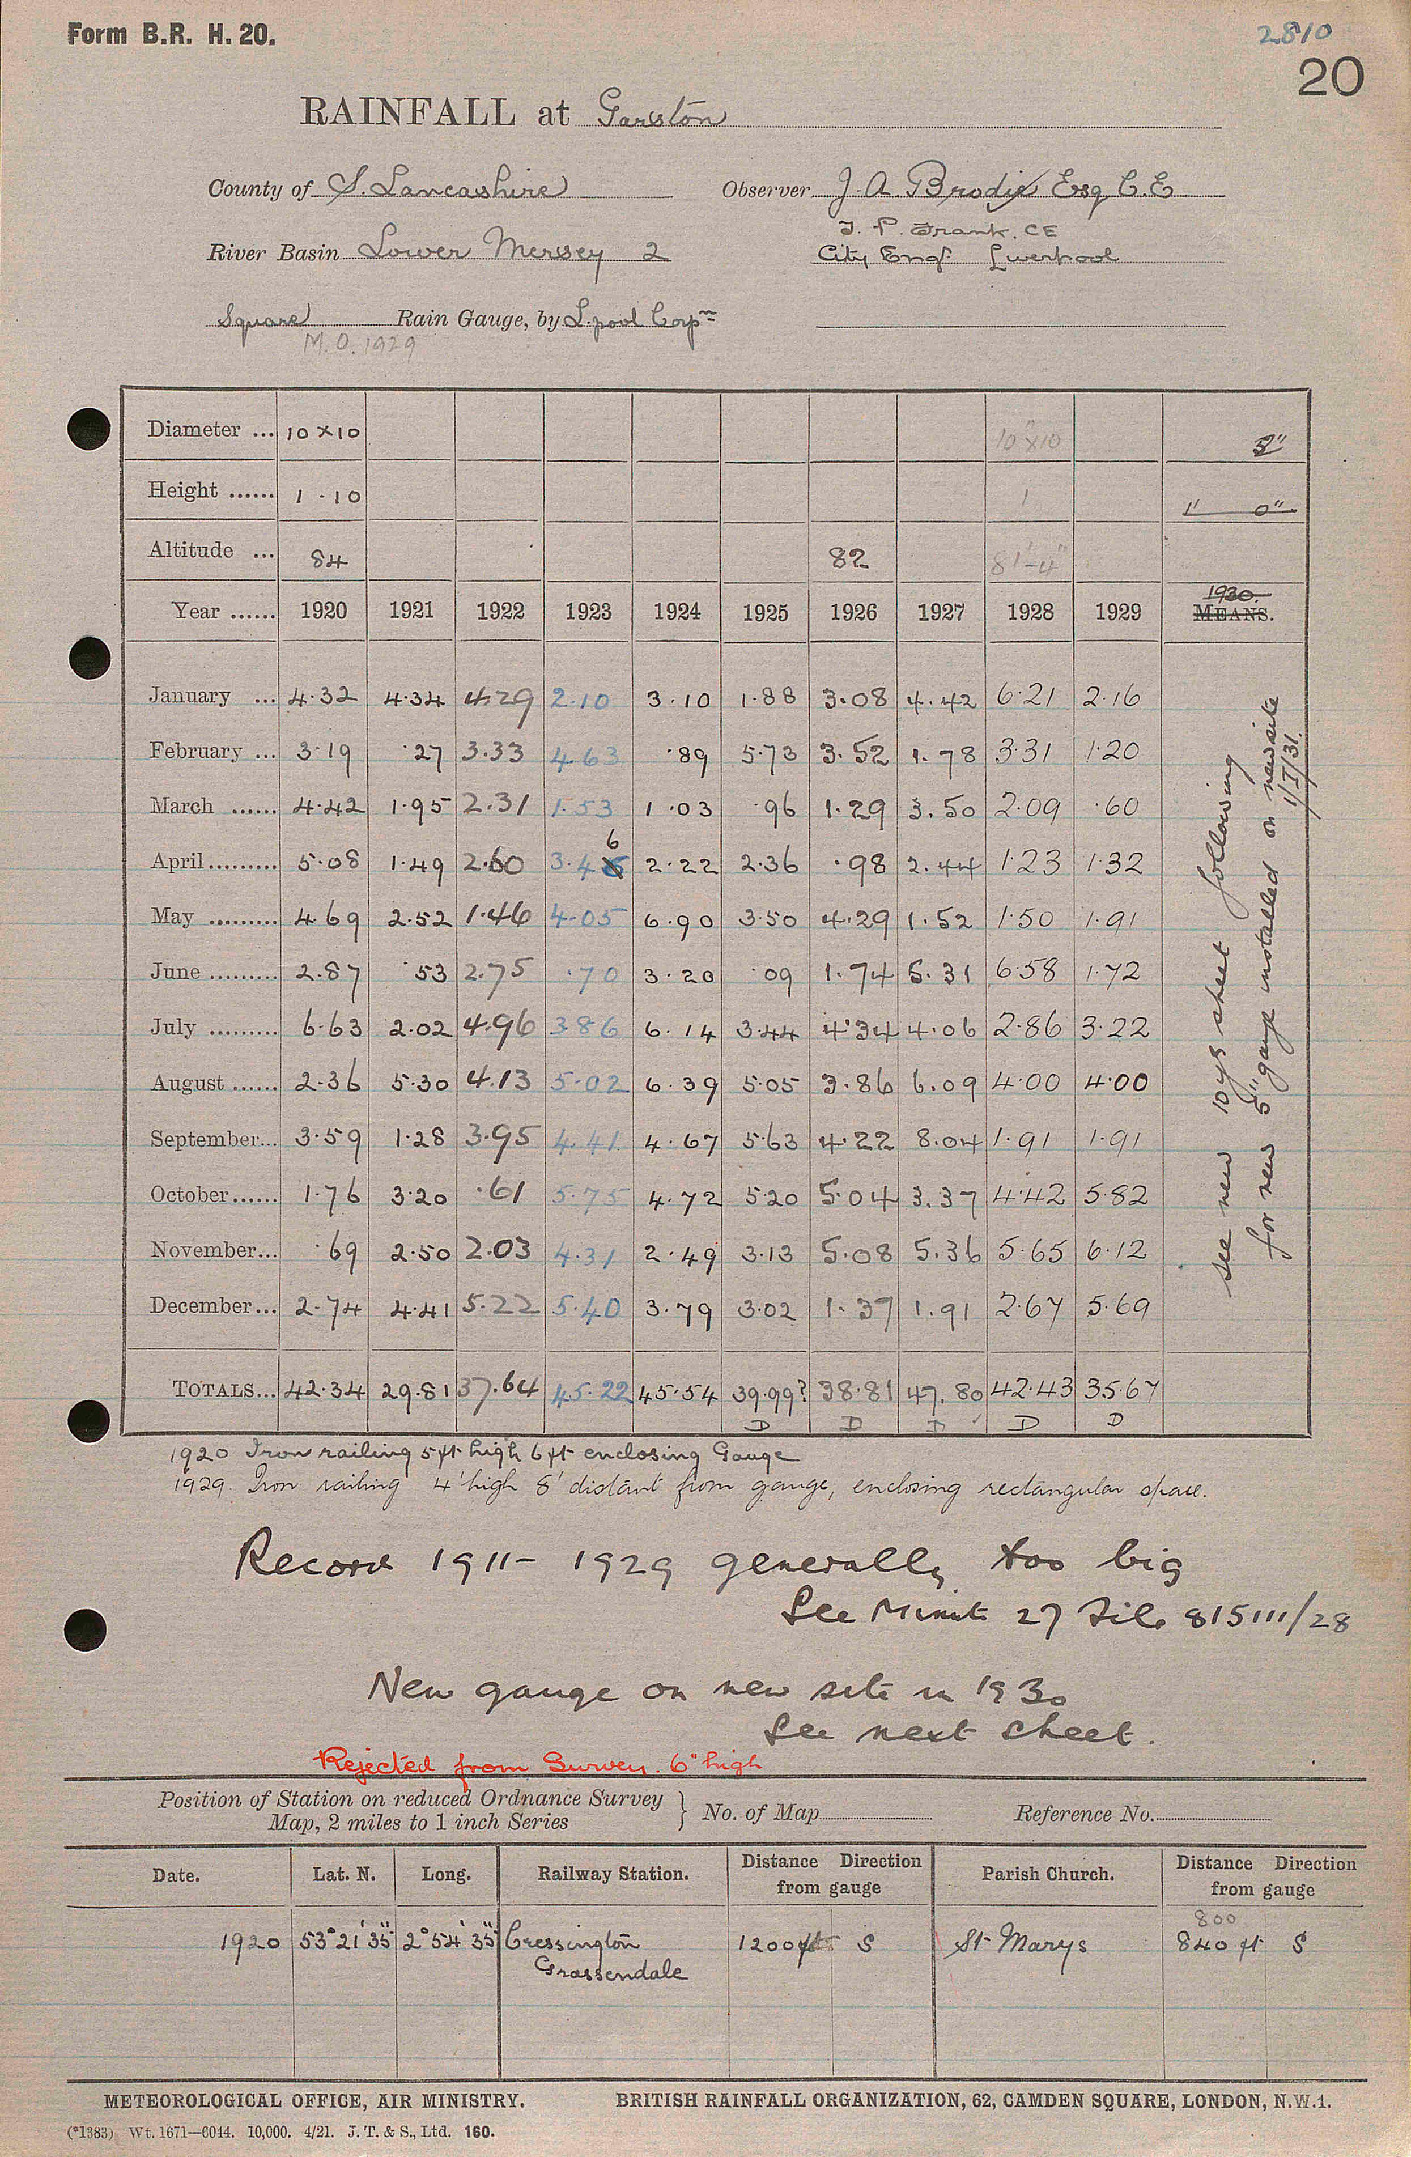 Form B.R. H. 20.
2810
20
RAINFALL at Garston
County of S. Lancashire Observer J A Brodie Esq C.E
T. P. Frank. CE
River Basin Lower Mersey 2 City Engr. Liverpool
Square Rain Gauge, by L.pool Corpn
M.O. 1929
Diameter ... 10 x 10 10" x 10 5"
Height ...... 1 - 10 1 1' 0"
Altitude ... 84 82 81'-4"
Year ...... 1920 1921 1922 1923 1924 1925 1926 1927 1928 1929 1930. MEANS.
January ... 4.32 4.34 4.29 2.10 3.10 1.88 3.08 4.42 6.21 2.16
February ... 3.19 .27 3.33 4.63 .89 5.73 3.52 1.78 3.31 1.20
March ...... 4.42 1.95 2.31 1.53 1.03 .96 1.29 3.50 2.09 .60
April ......... 5.08 1.49 2.60 3.46 2.22 2.36 .98 2.44 1.23 1.32
May ......... 4.69 2.52 1.46 4.05 6.90 3.50 4.29 1.52 1.50 1.91
June ......... 2.87 .53 2.75 .70 3.20 .09 1.74 5.31 6.58 1.72
July ......... 6.63 2.02 4.96 3.86 6.14 3.44 4.34 4.06 2.86 3.22
August ...... 2.36 5.30 4.13 5.02 6.39 5.05 3.86 6.09 4.00 4.00
September... 3.59 1.28 3.95 4.41 4.67 5.63 4.22 8.04 1.91 1.91
October ...... 1.76 3.20 .61 5.75 4.72 5.20 5.04 3.37 4.42 5.82
November... .69 2.50 2.03 4.31 2.49 3.13 5.08 5.36 5.65 6.12
December... 2.74 4.41 5.22 5.40 3.79 3.02 1.37 1.91 2.67 5.69
TOTALS... 42.34 29.81 37.64 45.22 45.54 39.99? 38.81 47.80 42.43 35.67
D D D D D
see new 10 yr sheet following
for new 5" gauge installed on new site
1/1/31.
1920 Iron railing 5ft high 6ft enclosing Gauge
1929. Iron railing 4' high 8' distant from gauge, enclosing rectangular space.
Record 1911 - 1929 generally too big
See Minute 27 File 815111/28
New gauge on new site in 1930
See next sheet.
Rejected from Survey. 6" high
Position of Station on reduced Ordnance Survey
Map, 2 miles to 1 inch Series } No. of Map Reference No.
Date. Lat. N. Long. Railway Station. Distance Direction from gauge Parish Church. Distance Direction from gauge
800
1920 53° 21' 35" 2° 54' 35" Cressington 1200 ft S St Marys 840 ft S
Grassendale
METEOROLOGICAL OFFICE, AIR MINISTRY. BRITISH RAINFALL ORGANIZATION, 62, CAMDEN SQUARE, LONDON, N.W.1.
(*1383) Wt. 1671—6044. 10,000. 4/21. J. T. & S., Ltd. 160.